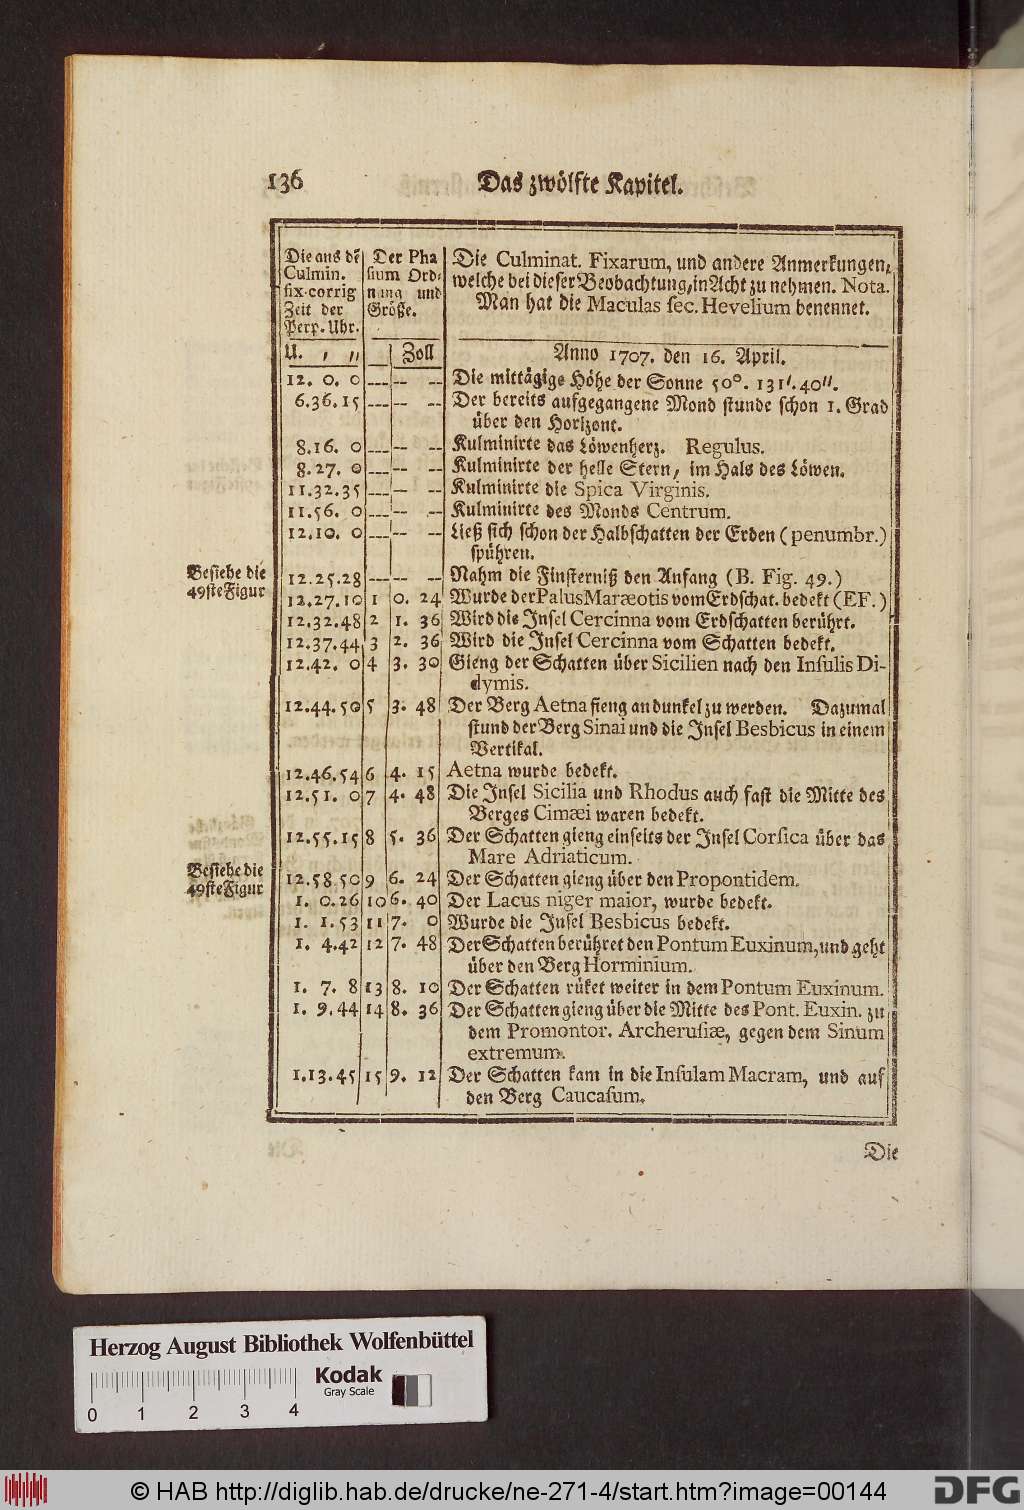 136 Das zwölfte Kapitel.
Die aus dē Der Pha Die Culminat. Fixarum, und andere Anmerkungen,
Culmin. sium Ord- welche bei dieser Beobachtung, in Acht zu nehmen. Nota.
fix.corrig nung und Man hat die Maculas sec. Hevelium benennet.
Zeit der Größe.
Perp. Uhr.
U. , ,, Zoll Anno 1707. den 16. April.
12. 0. 0 --- -- -- Die mittägige Höhe der Sonne 50°. 131'. 40''.
6.36.15 --- -- -- Der bereits aufgegangene Mond stunde schon 1. Grad
über den Horizont.
8.16. 0 --- -- -- Kulminirte das Löwenherz. Regulus.
8.27. 0 --- -- -- Kulminirte der helle Stern, im Hals des Löwen.
11.32.35 --- -- -- Kulminirte die Spica Virginis.
11.56. 0 --- -- -- Kulminirte des Monds Centrum.
12.10. 0 --- -- -- Ließ sich schon der Halbschatten der Erden (penumbr.)
spühren.
Besiehe die
49ste Figur
12.25.28 --- -- -- Nahm die Finsterniß den Anfang (B. Fig. 49.)
12.27.10 1 0. 24 Wurde der Palus Maræotis vom Erdschat. bedekt (EF.)
12.32.48 2 1. 36 Wird die Insel Cercinna vom Erdschatten berührt.
12.37.44 3 2. 36 Wird die Insel Cercinna vom Schatten bedekt.
12.42. 0 4 3. 30 Gieng der Schatten über Sicilien nach den Insulis Di-
dymis.
12.44.50 5 3. 48 Der Berg Aetna fieng an dunkel zu werden. Dazumal
stund der Berg Sinai und die Insel Besbicus in einem
Vertikal.
12.46.54 6 4. 15 Aetna wurde bedekt.
12.51. 0 7 4. 48 Die Insel Sicilia und Rhodus auch fast die Mitte des
Berges Cimæi waren bedekt.
12.55.15 8 5. 36 Der Schatten gieng einseits der Insel Corsica über das
Mare Adriaticum.
Besiehe die
49ste Figur
12.58.50 9 6. 24 Der Schatten gieng über den Propontidem.
1. 0.26 10 6. 40 Der Lacus niger maior, wurde bedekt.
1. 1.53 11 7. 0 Wurde die Insel Besbicus bedekt.
1. 4.42 12 7. 48 Der Schatten berühret den Pontum Euxinum, und geht
über den Berg Horminium.
1. 7. 8 13 8. 10 Der Schatten rüket weiter in dem Pontum Euxinum.
1. 9.44 14 8. 36 Der Schatten gieng über die Mitte des Pont. Euxin. zu
dem Promontor. Archerusiæ, gegen dem Sinum
extremum.
1.13.45 15 9. 12 Der Schatten kam in die Insulam Macram, und auf
den Berg Caucasum.
Die
Herzog August Bibliothek Wolfenbüttel
Kodak
Gray Scale
0 1 2 3 4
© HAB http://diglib.hab.de/drucke/ne-271-4/start.htm?image=00144
DFG